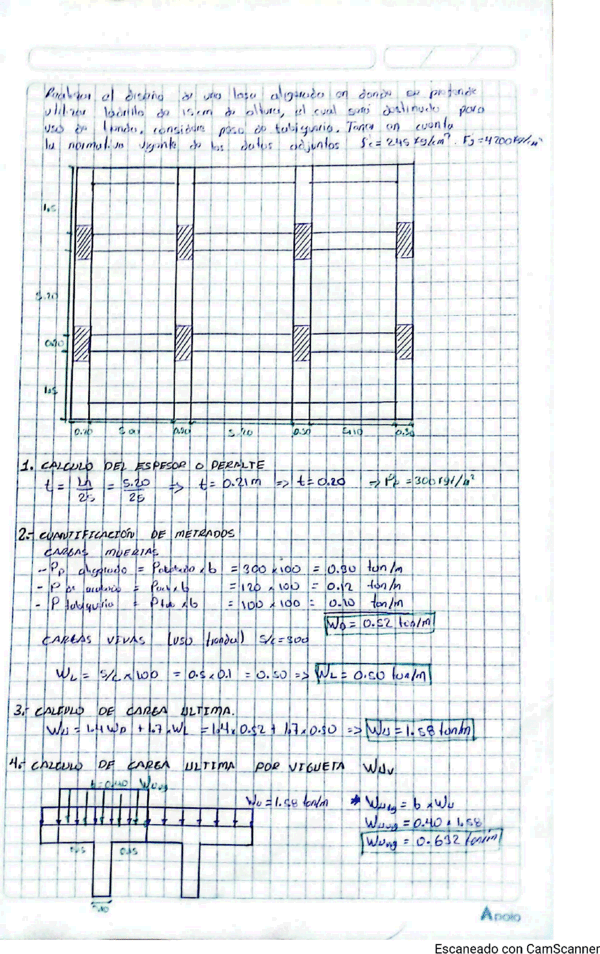 Realizar el diseño de una losa aligerada en donde se pretende
utilizar ladrillo de 15cm de altura, el cual será destinado para
uso de tienda, considere peso de tabiquería. Tomar en cuenta
la normativa vigente de los datos adjuntos f'c = 245 kg/cm². Fy = 4200 kg/cm²
1.5
5.20
0.20
1.5
0.30 5.00 0.30 5.20 0.30 5.10 0.30
1. CALCULO DEL ESPESOR O PERALTE
t = Ln/25 = 5.20/25 => t = 0.21m => t = 0.20 => Pp = 300 kgf/m²
2.- CUANTIFICACIÓN DE METRADOS
CARGAS MUERTAS
- Pp aligerado = Paligerado x b = 300 x 100 = 0.30 ton/m
- P p. acabado = Pacab x b = 120 x 100 = 0.12 ton/m
- P tabiquería = Ptab x b = 100 x 100 = 0.10 ton/m
WD = 0.52 ton/m
CARGAS VIVAS (USO tienda) S/C = 500
WL = S/C x 100 = 0.5 x 0.1 = 0.50 => WL = 0.50 ton/m
3.- CALCULO DE CARGA ULTIMA.
WU = 1.4 WD + 1.7 x WL = 1.4 x 0.52 + 1.7 x 0.50 => WU = 1.58 ton/m
4.- CALCULO DE CARGA ULTIMA POR VIGUETA WUV
b = 0.40 Wuvg
Wu = 1.58 ton/m * Wuvg = b x Wu
Wuvg = 0.40 x 1.58
0.15 0.15 Wuvg = 0.632 ton/m
0.10
Apolo
Escaneado con CamScanner